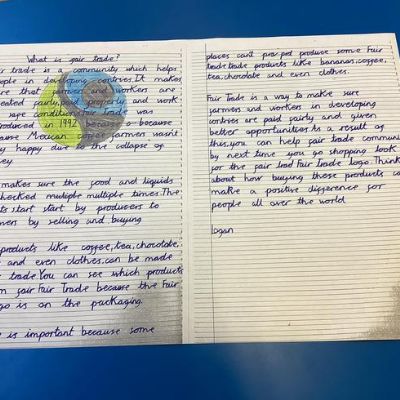 What is fair trade?
trade is a community which helps
people in developing contries. It makes
that farmers workers are
fairly, paid properly and work
safe conditions. Fair Trade was
in 1992 because
Mexican farmers wasn't
happy due to the collapse of
makes sure the food and liquids
checked multiple multiple times. The
start start by producers to
by selling and buying
products like coffee, tea, chocolate,
and even clothes, can be made
trade. You can see which products
fair Fair Trade because the Fair
is on the packaging.
is important because some
places cant produce some Fair
trade products like bananas, coffee,
tea, chocolate and even clothes.
Fair Trade is a way to make sure
farmers and workers in developing
contries are paid fairly and given
better opportunities. As a result of
this, you can help fair trade community
by next time you go shopping look
for the fair trade Fair Trade logo. Think
about how buying these products can
make a positive difference for
people all over the world
logan